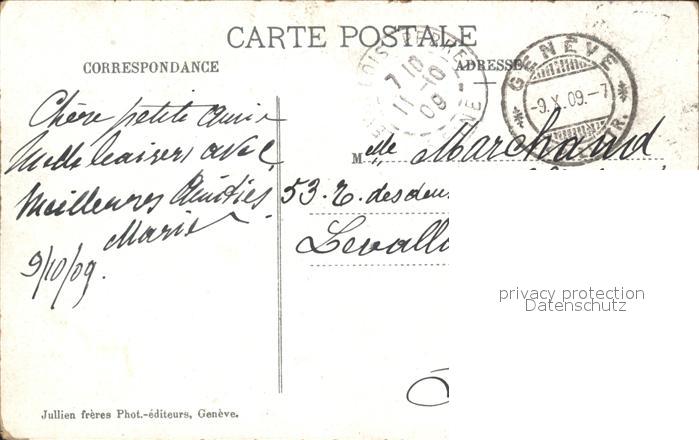 CARTE POSTALE
CORRESPONDANCE
ADRESSE
GENÈVE
-9.X.09.-7
7 10
11-10
09
Chère petite Amie
Mille baisers avec
Meilleures Amitiés
Marie
9/10/09.
Mlle Marchand
53. r. des deux
Levall
privacy protection
Datenschutz
Jullien frères Phot.-éditeurs, Genève.